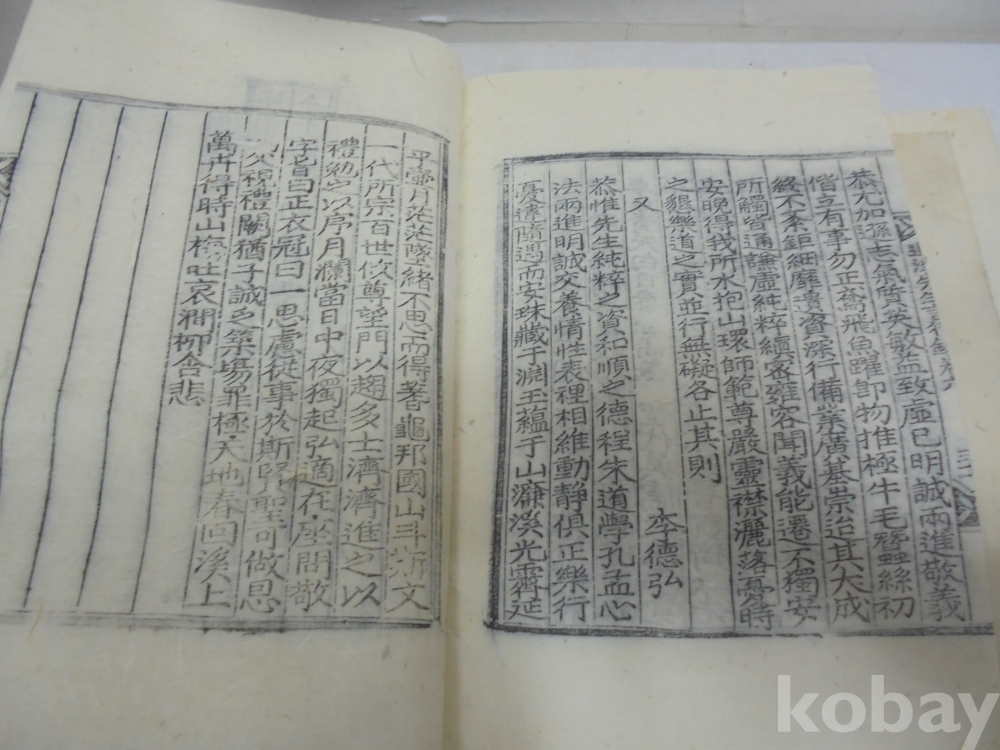 恭尤加 志氣質英敏益致虛己明誠兩進敬義
偕立有事勿正鳶飛魚躍卽物推極牛毛蠶絲初
終不紊鉅細靡遺資深行備業廣基崇迨其大成
所觸皆通謙虛純粹縝密雍容聞義能遷不獨安
安晚得我所水抱山環師範尊嚴靈襟灑落憂時
之懇樂道之實並行無礙各止其則
又 李德弘
恭惟先生純粹之資和順之德程朱道學孔孟心
法兩進明誠交養情性表裡相維動靜俱正樂行
憂違隨遇而安珠藏于淵玉蘊于山濂溪光霽延
平壺月茫茫墜緖不思而得蓍龜邦國山斗斯文
一代所宗百世攸尊望門以趨多士濟濟進之以
禮勉之以序月瀾當日中夜獨起弘適在座問敬
字旨曰正衣冠曰一思慮從事於斯賢聖可做恩
父視禮闕猶子誠乏築場罪極天地春回溪上
萬卉得時山梅吐哀澗柳含悲
kobay